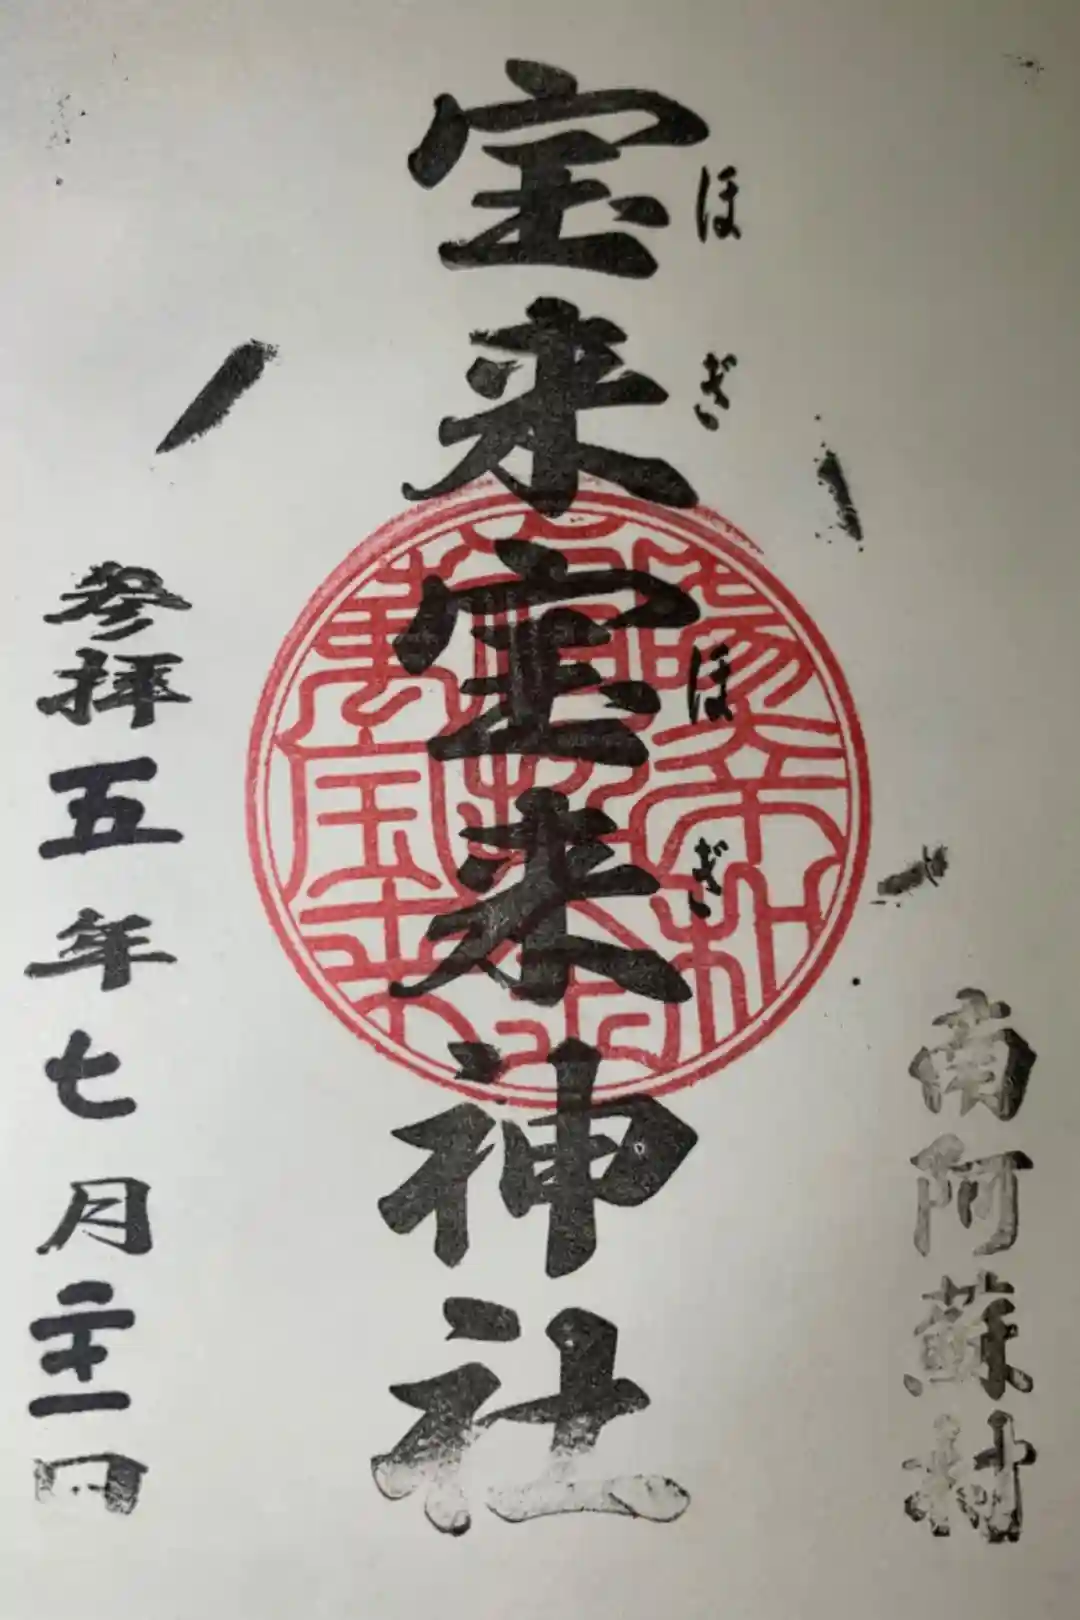 南阿蘇村
ほぎほぎ
宝来宝来神社
参拝五年七月二十一日